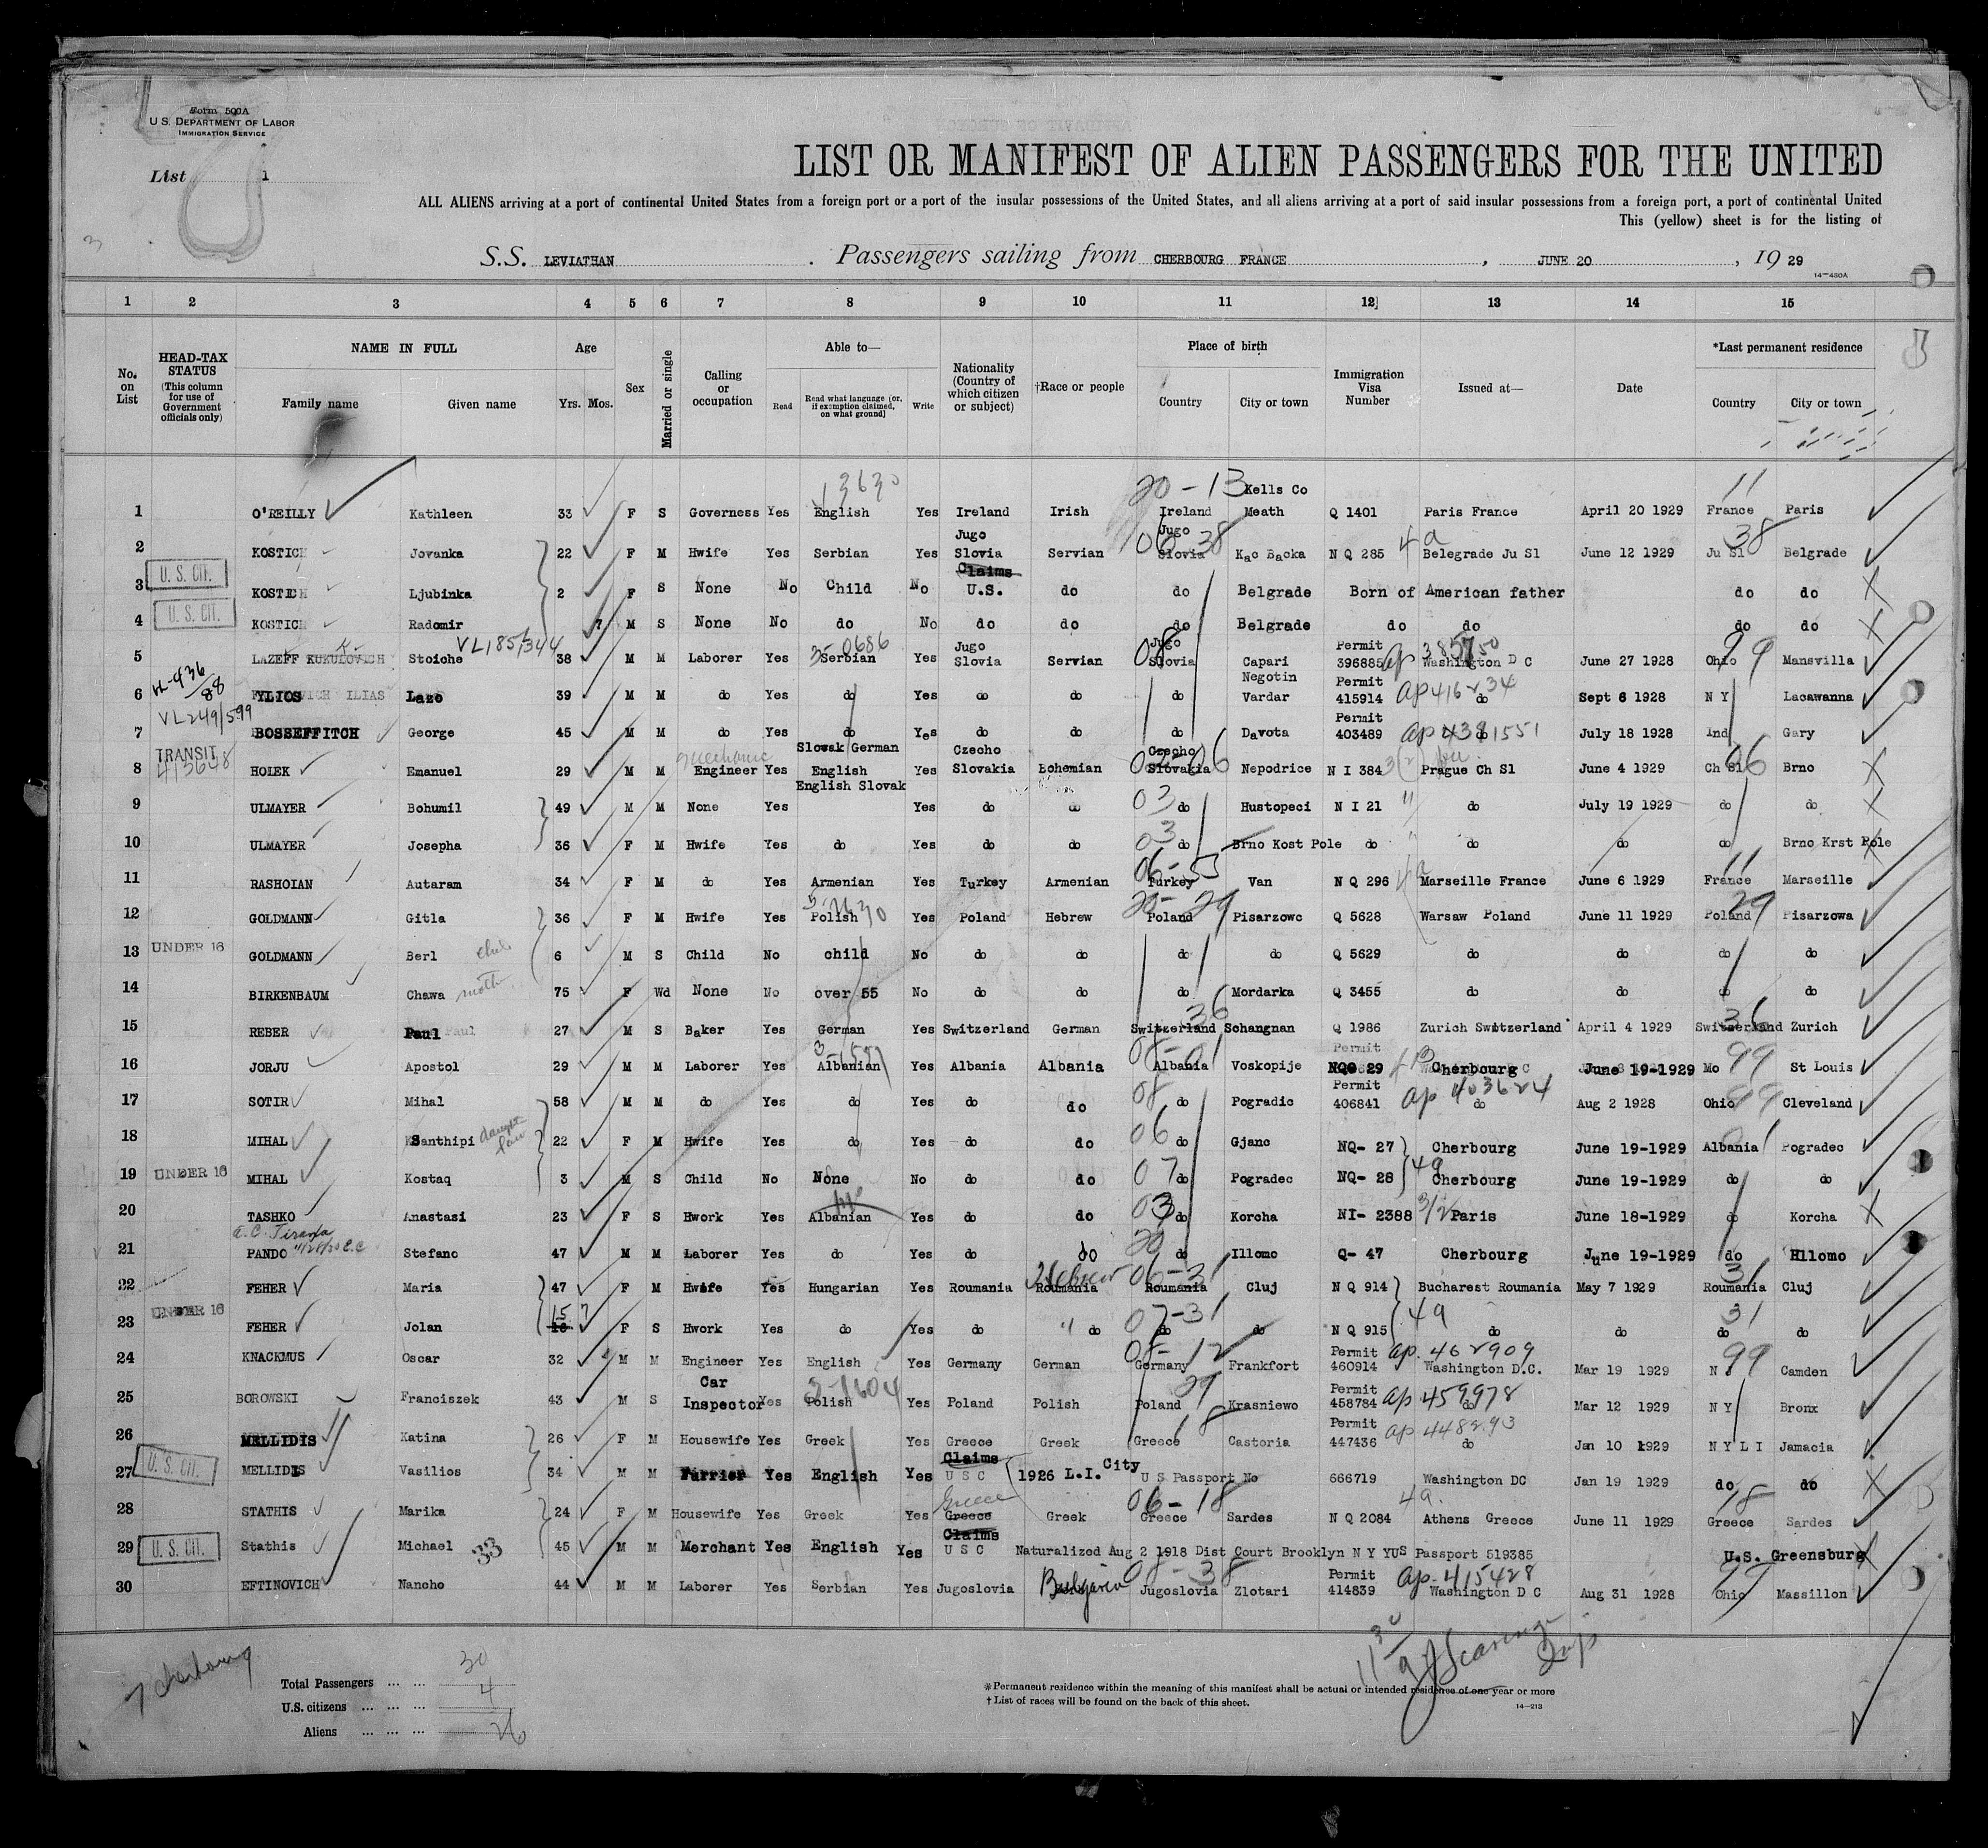 Form 500A
U.S. DEPARTMENT OF LABOR
IMMIGRATION SERVICE
List 1
LIST OR MANIFEST OF ALIEN PASSENGERS FOR THE UNITED
ALL ALIENS arriving at a port of continental United States from a foreign port or a port of the insular possessions of the United States, and all aliens arriving at a port of said insular possessions from a foreign port, a port of continental United
This (yellow) sheet is for the listing of
S.S. LEVIATHAN . Passengers sailing from CHERBOURG FRANCE , JUNE 20 , 19 29
14—430A
1 2 3 4 5 6 7 8 9 10 11 12] 13 14 15
No. on List
HEAD-TAX STATUS (This column for use of Government officials only)
NAME IN FULL Family name Given name
Age Yrs. Mos.
Sex
Married or single
Calling or occupation
Able to— Read Read what language [or, if exemption claimed, on what ground] Write
Nationality (Country of which citizen or subject)
†Race or people
Place of birth Country City or town
Immigration Visa Number
Issued at—
Date
*Last permanent residence Country City or town
3630 20-13 Kells Co 11
1 O'REILLY Kathleen 33 F S Governess Yes English Yes Ireland Irish Ireland Meath Q 1401 Paris France April 20 1929 France Paris
2 KOSTICH Jovanka 22 F M Hwife Yes Serbian Yes Jugo Slovia Servian Jugo Slovia 06 38 Kac Backa N Q 285 4a Belegrade Ju Sl June 12 1929 Ju Sl 38 Belgrade
U. S. CIT.
3 KOSTICH Ljubinka 2 F S None No Child No Claims U.S. do do Belgrade Born of American father do do
U. S. CIT.
4 KOSTICH Radomir 7 M S None No do No do do do Belgrade do do do do
5 LAZEFF KUKULOVICH Stoiche VL185/344 38 M M Laborer Yes 3-0686 Serbian Yes Jugo Slovia Servian Jugo Slovia 08 Capari Permit 396885 ap 385750 Washington D C June 27 1928 Ohio 99 Mansvilla
6 YLIOS ILIAS Lazo 39 M M do Yes do Yes do do do Negotin Vardar Permit 415914 ap 416234 do Sept 6 1928 N Y Lacawanna
VL249/599
7 BOSSEFFITCH George 45 M M do Yes do Yes do do do Davota Permit 403489 do July 18 1928 Ind Gary
TRANSIT 413648
8 HOLEK Emanuel 29 M M mechanic Engineer Yes Slovak German English Yes Czecho Slovakia Bohemian Czecho Slovakia Nepodrice N I 384 Prague Ch Sl June 4 1929 Ch Sl 06 Brno
9 ULMAYER Bohumil 49 M M None Yes English Slovak Yes do do 03 do Hustopeci N I 21 do July 19 1929 do do
10 ULMAYER Josepha 36 F M Hwife Yes do Yes do do 03 do Brno Kost Pole do do do do Brno Krst Pole
11 RASHOIAN Autaram 34 F M do Yes Armenian Yes Turkey Armenian 06-55 Turkey Van N Q 296 4a Marseille France June 6 1929 France 11 Marseille
12 GOLDMANN Gitla 36 F M Hwife Yes Polish Yes Poland Hebrew Poland 29 Pisarzowc Q 5628 Warsaw Poland June 11 1929 Poland 29 Pisarzowa
UNDER 16
13 GOLDMANN Berl 6 M S Child No child No do do do do Q 5629 do do do do
14 BIRKENBAUM Chawa 75 F Wd None No over 55 No do do do Mordarka Q 3455 do do do do
15 REBER Paul 27 M S Baker Yes German Yes Switzerland German Switzerland 36 Schangnan Q 1986 Zurich Switzerland April 4 1929 Switzerland 36 Zurich
16 JORJU Apostol 29 M M Laborer Yes Albanian Yes Albania Albania Albania Voskopije Permit NQ 29 Cherbourg June 19-1929 Mo 99 St Louis
17 SOTIR Mihal 58 M M do Yes do Yes do do 08 do Pogradic Permit 406841 ap 403624 do Aug 2 1928 Ohio 99 Cleveland
18 MIHAL Santhipi 22 F M Hwife Yes do Yes do do 06 do Gjanc NQ- 27 Cherbourg June 19-1929 Albania Pogradec
UNDER 16
19 MIHAL Kostaq 3 M S Child No None No do do 07 do Pogradec NQ- 28 Cherbourg June 19-1929 do do
20 TASHKO Anastasi 23 F S Hwork Yes Albanian Yes do do 03 do Korcha NI- 2388 3/2 Paris June 18-1929 do Korcha
21 PANDO Stefano 47 M M Laborer Yes do Yes do do 20 do Illomo Q- 47 Cherbourg June 19-1929 do Hllomo
22 FEHER Maria 47 F M Hwife Yes Hungarian Yes Roumania Hebrew Roumania 06-31 Roumania Cluj N Q 914 Bucharest Roumania May 7 1929 Roumania 31 Cluj
UNDER 16
23 FEHER Jolan 15 F S Hwork Yes do Yes do " do 07-31 do do N Q 915 4a do do do 31 do
24 KNACKMUS Oscar 32 M M Engineer Yes English Yes Germany German 08-12 Germany Frankfort Permit 460914 ap. 462909 Washington D.C. Mar 19 1929 N J 99 Camden
25 BOROWSKI Franciszek 43 M S Car Inspector Yes 2-1604 Polish Yes Poland Polish Poland 29 Krasniewo Permit 458784 ap 459978 do Mar 12 1929 N Y Bronx
26 MELLIDIS Katina 26 F M Housewife Yes Greek Yes Greece Greek Greece 18 Castoria Permit 447436 ap 448293 do Jan 10 1929 N Y L I Jamacia
U. S. CIT.
27 MELLIDIS Vasilios 34 M M Furrier Yes English Yes Claims U S C 1926 L.I. City U S Passport No 666719 Washington DC Jan 19 1929 do do
28 STATHIS Marika 24 F M Housewife Yes Greek Yes Greece Greece Greek 06-18 Greece Sardes N Q 2084 4a. Athens Greece June 11 1929 Greece 18 Sardes
U. S. CIT.
29 Stathis Michael 33 45 M M Merchant Yes English Yes Claims U S C Naturalized Aug 2 1918 Dist Court Brooklyn N Y YUS Passport 519385 U.S. Greensburg
30 EFTINOVICH Nancho 44 M M Laborer Yes Serbian Yes Jugoslovia Bulgarian 08-38 Jugoslovia Zlotari Permit 414839 ap. 415428 Washington D C Aug 31 1928 Ohio 99 Massillon
7 Cherbourg
Total Passengers ... ... 30
U.S. citizens ... ... ... 4
Aliens ... ... ... 26
*Permanent residence within the meaning of this manifest shall be actual or intended residence of one year or more
†List of races will be found on the back of this sheet.
14—213